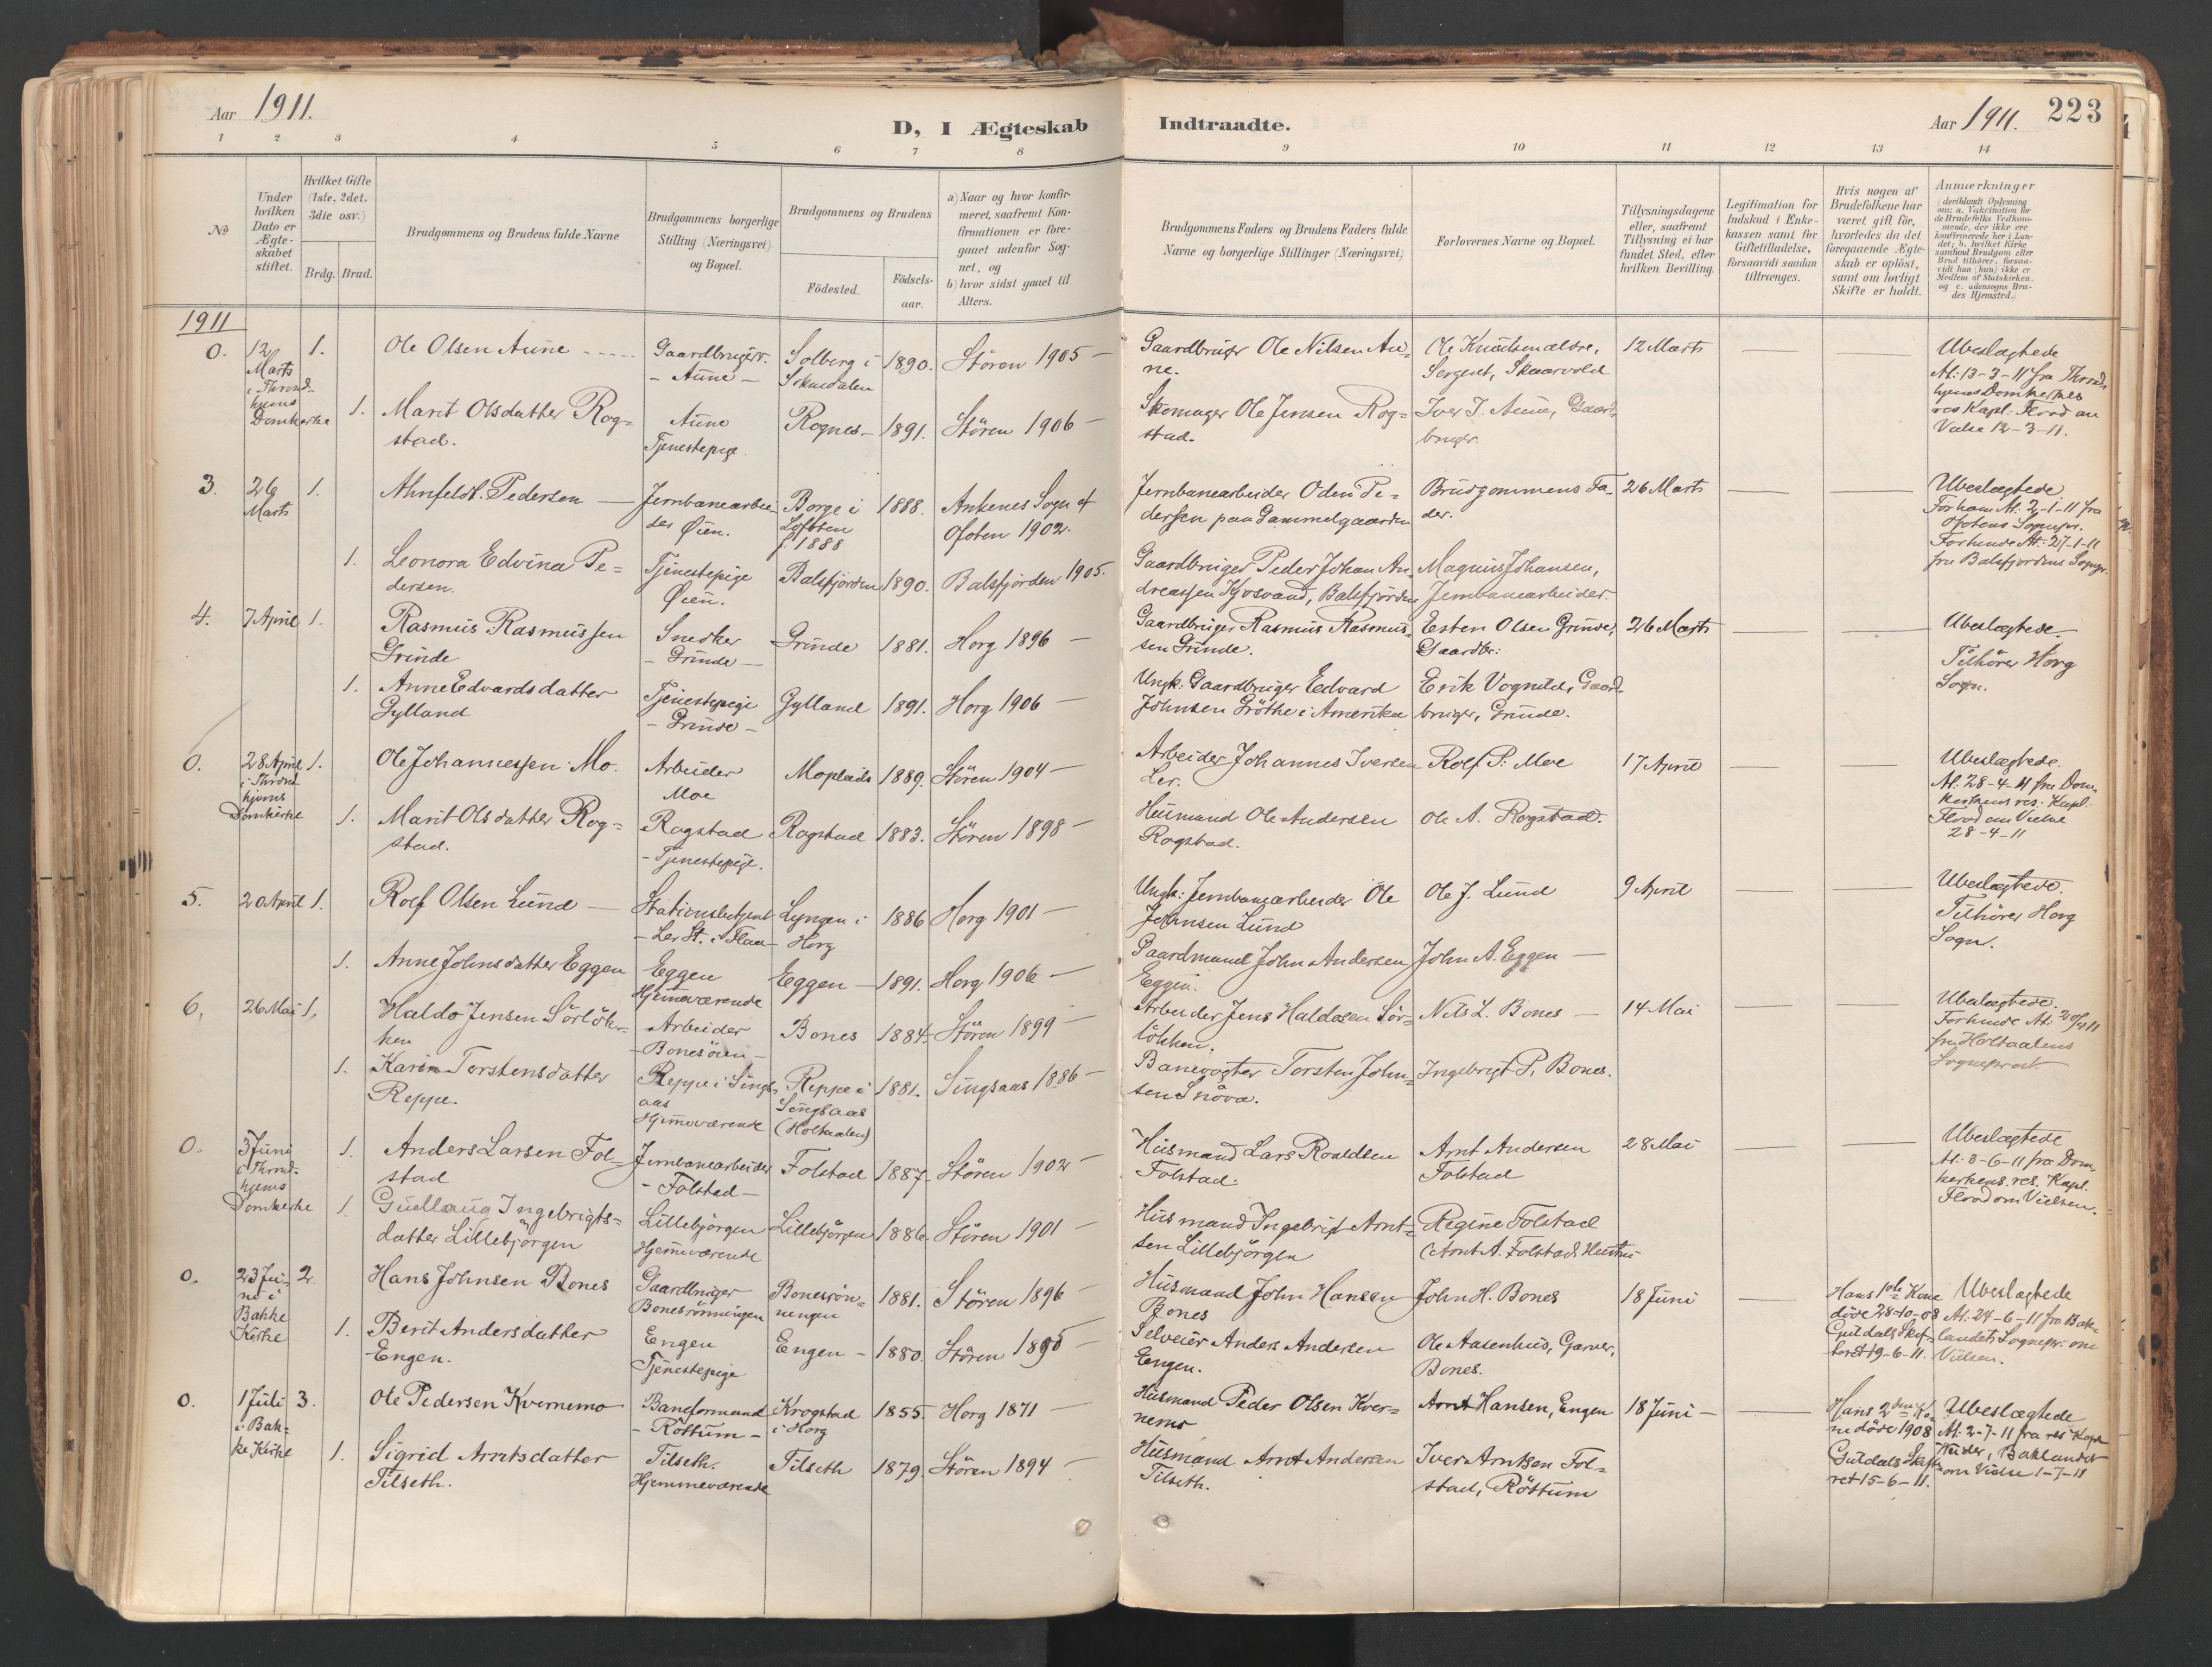 Aar 1911.
D, I Ægteskab
Indtraadte.
Aar 1911.
223
1 2 3 4 5 6 7 8
9 10 11 12 13 14
No
Under hvilken Dato er Ægteskabet stiftet.
Hvilket Gifte (1ste, 2det, 3die osv.)
Brdg. Brud.
Brudgommens og Brudens fulde Navne
Brudgommens borgerlige Stilling (Næringsvei) og Bopæl.
Brudgommens og Brudens
Födested.
Födsels-aar.
a) Naar og hvor konfirmeret, saafremt Konfirmationen er foregaaet udenfor Sognet, og
b) hvor sidst gaaet til Alters.
Brudgommens Faders og Brudens Faders fulde Navne og borgerlige Stillinger (Næringsvei)
Forlovernes Navne og Bopæl.
Tillysningsdagene eller, saafremt Tillysning ei har fundet Sted, efter hvilken Bevilling.
Legitimation for Indskud i Enkekassen samt for Giftetilladelse, forsaavidt saadan tiltrænges.
Hvis nogen af Brudefolkene har været gift för, hvorledes da det foregaaende Ægteskab er oplöst, samt om lovligt Skifte er holdt.
Anmærkninger (deriblandt Oplysning om: a. Vakcination for de Brudefolks Vedkommende, der ikke ere konfirmerede her i Landet; b. hvilket Kirkesamfund Brudgom eller Brud tilhører, forsaavidt han (hun) ikke er Medlem af Statskirken, og c. udensogns Brudes Hjemsted.)
1911
0. 12 Marts i Throndhjems Domkirke 1. Ole Olsen Aune Gaardbruger. - Aune - Solberg i Soknedalen 1890. Stören 1905 - Gaardbruger Ole Nilsen Aune. Ole Knudsen ældre, Sergent, Skaarvold 12 Marts — — Ubeslægtede At. 13-3-11 fra Throndhjems Domkirkes res Kapl. Flood om Vielse 12-3-11.
1. Marit Olsdatter Rogstad. Aune Tjenestepige. Rognes - 1891. Stören 1906 - Skomager Ole Jensen Rogstad. Iver J. Aune, Gaardbruger.
3. 26 Marts 1. Ahnfeldt Pedersen — Jernbanearbeider Øien. Borge i Lofoten f. 1888 1888. Ankenes Sogn af Ofoten 1902. Jernbanearbeider Oden Pedersen paa Gammelgaarden Brudgommens Fader. 26 Marts — — Ubeslægtede For ham At. 2-1-11 fra Ofotens Sognepr. For hende At. 27-1-11 fra Balsfjordens Sognepr.
1. Leonora Edvina Pedersen. Tjenestepige Øien. Balsfjorden 1890. Balsfjorden 1905. Gaardbruger Peder Johan Andreassen Kjosvand, Balsfjorden Magnus Johansen, Jernbanearbeider.
4. 7 April 1. Rasmus Rasmussen Grinde Snedker - Grinde - Grinde 1881. Horg 1896 - Gaardbruger Rasmus Rasmussen Grinde. Esten Olsen Grinde, Gaardbr: 26 Marts — — Ubeslægtede. Tilhörer Horg Sogn.
1. Anne Edvardsdatter Gylland Tjenestepige - Grinde - Gylland 1891. Horg 1906 - Ungk: Gaardbruger Edvard Johnsen Gröthe i Amerika Erik Vognild, Gaardbruger, Grinde.
0. 28 April i Throndhjems Domkirke 1. Ole Johannessen Mo. Arbeider Moe Moplads 1889. Stören 1904 - Arbeider Johannes Iversen Ler. Rolf P. Moe 17 April — — Ubeslægtede. At. 28-4-11 fra Domkirkens res. Kapl. Flood om Vielse 28-4-11
1. Marit Olsdatter Rogstad. Rogstad - Tjenestepige. Rogstad 1883. Stören 1898 - Husmand Ole Andersen Rogstad. Ole A. Rogstad.
5. 20 April 1. Rolf Olsen Lund — Stationsbetjent - Ler St. i Flaa - Lyngen i Horg 1886 Horg 1901 - Ungk: Jernbanearbeider Ole Johnsen Lund Ole J. Lund 9 April — — Ubeslægtede. Tilhörer Horg Sogn.
1. Anne Johnsdatter Eggen Eggen Hjemmeværende Eggen - 1891. Horg 1906 - Gaardmand John Andersen Eggen. John A. Eggen —
6. 26 Mai 1. Haldo Jensen Sörlökken Arbeider - Bonesöien - Bones 1884. Stören 1899 - Arbeider Jens Haldosen Sörlökken. Nils L. Bones — 14 Mai — — Ubeslægtede. For hende At. 20/4 11 fra Holtaalens Sogneprest.
1. Karen Torstensdatter Reppe. Reppe i Singsaas Hjemmeværende Reppe i Singsaas (Holtaalen) 1881. Singsaas 1886 - Banevogter Torsten Johnsen Snöva. Ingebrigt P. Bones.
0. 3 Juni i Throndhjems Domkirke 1. Anders Larsen Folstad Jernbanearbeider - Folstad - Folstad 1887. Stören 1902 - Husmand Lars Roaldsen Folstad. Arnt Andersen Folstad 28 Mai — — Ubeslægtede At. 3-6-11 fra Domkirkens res. Kapl. Flood om Vielsen.
1. Gullaug Ingebrigtsdatter Lillebjörgen Lillebjörgen Hjemmeværende Lillebjörgen 1886. Stören 1901 - Husmand Ingebrigt Arntsen Lillebjörgen Regine Folstad (Arnt A. Folstads Hustru
0. 23 Juni i Bakke Kirke 2. Hans Johnsen Bones Gaardbruger Bonesrönningen Bonesrönningen 1881. Stören 1896 - Husmand John Hansen Bones John H. Bones 18 Juni — Hans 1ste Kone döde 28-10-08 Guldals Skifteret 19-6-11. Ubeslægtede At. 24-6-11 fra Baklandets Sognepr. om Vielsen.
1. Berit Andersdatter Engen. Engen Tjenestepige Engen - 1880. Stören 1895 - Selveier Anders Andersen Engen. Ole Aasenhus, Garver, Bones.
0. 1 Juli i Bakke Kirke 3. Ole Pedersen Kvernemo Baneformand - Röttum - Krogstad i Horg 1855. Horg 1871 - Husmand Peder Olsen Kvernemo Arnt Hansen, Engen 18 Juni — — Hans 2den Kone döde 1908 Guldals Skifteret 15-6-11. Ubeslægtede At. 2-7-11 fra res Kapl Baklandet om Vielse 1-7-11
1. Sigrid Arntsdatter Tilseth. Tilseth. Hjemmeværende Tilseth 1879. Stören 1894 - Husmand Arnt Andersen Tilseth. Iver Arntsen Folstad, Röttum